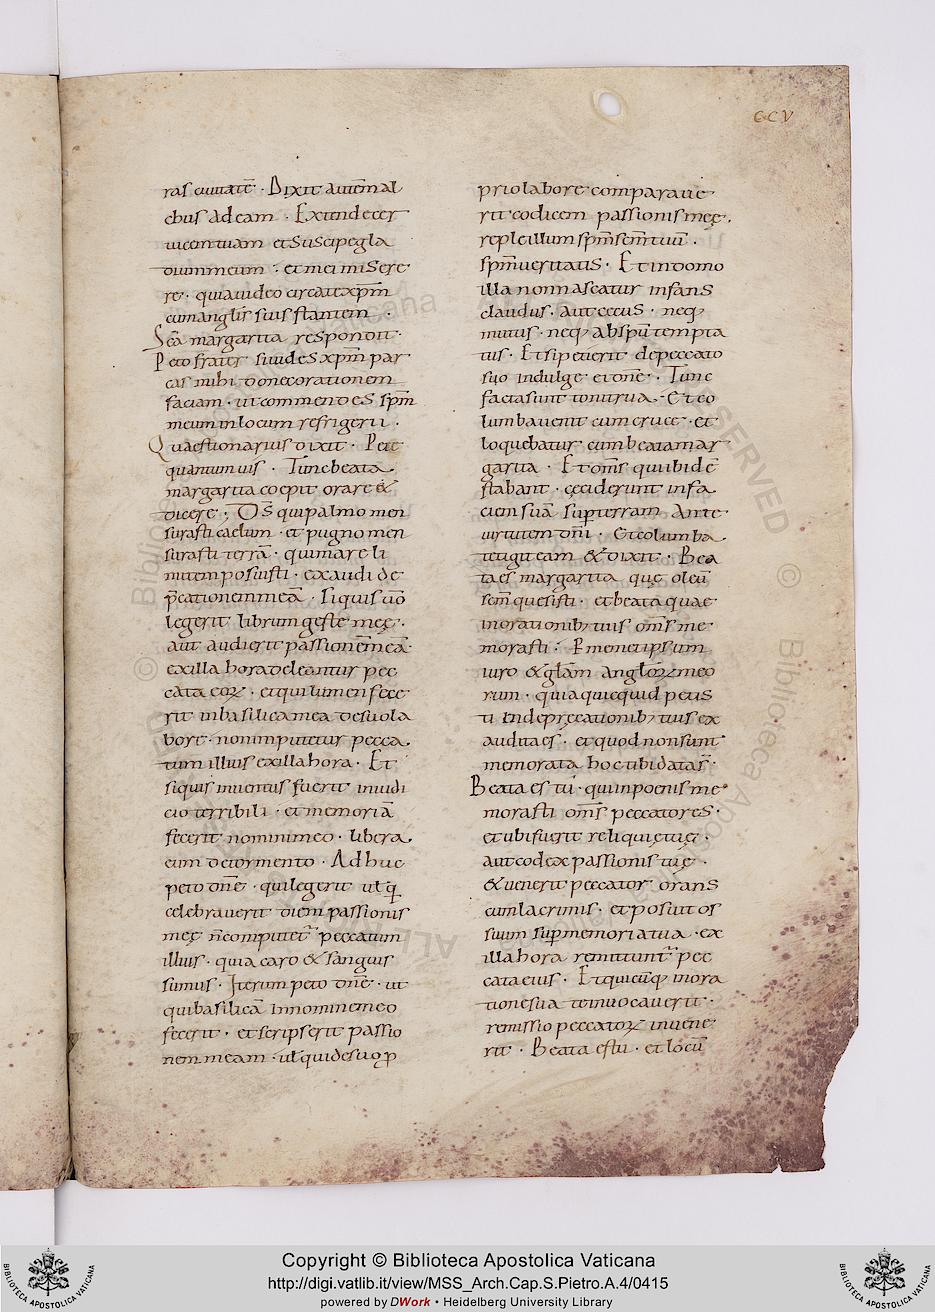 CCV
ras ciuitatē · Dixit autem al
chus ad eam · Extende cer
uicem tuam et suscipe gla
dium meum · et mei misere
re · quia uideo circa te xp̄m
cum anglis̄ suis stantem ·
Sc̄a margarita respondit ·
Peto frater si uides xp̄m par
cas mihi donec orationem
faciam · ut commendes sp̄m
meum in locum refrigerii ·
Quaestionarius dixit · Pete
quantum uis · Tunc beata
margarita coepit orare &
dicere ; D̄s qui palmo men
surasti caelum · et pugno men
surasti terrā · qui mare li
mitem posuisti · exaudi de
p̄cationem meā · si quis uō
legerit librum gestę meę ·
aut audierit passionē meā ·
ex illa hora deleantur pec
cata eoꝝ · et qui lumen fece
rit in basilica mea de suo la
bore · non imputetur pecca
tum illius ex illa hora · Et
si quis inuentus fuerit in iudi
cio terribili · et memoriā
fecerit nomini meo · libera
eum de tormento · Adhuc
peto dn̄e · qui legerit ul̄ q
celebrauerit diem passionis
meę n̄ computet̄ peccatum
illius · quia caro & sanguis
sumus · Iterum peto dn̄e · ut
qui basilicā in nomine meo
fecerit · et scripserit passio
nem meam · ul̄ qui de suo ꝓ
prio labore comparaue
rit codicem passionis meę ,
reple illum sp̄m sc̄m tuū ·
sp̄m ueritatis · Et in domo
illa non nascatur infans
claudus · aut cecus · neq;
mutus · neq; ab sp̄u tempta
tus · Et si petierit de peccato
suo indulge ei dn̄e · Tunc
facta sunt tonitrua · & co
lumba uenit cum cruce · et
loquebatur cum beata mar
garita · Et om̄s qui ibidē
stabant · ceciderunt in fa
ciem suā super terram ante
uirtutem dn̄i · Et columba
tetigit eam & dixit · Bea
ta es margarita que oleū
sc̄m quesisti · et beata quae
in orationib; tuis om̄s me
morasti : Per memetipsum
iuro & gl̄am angl̄oꝝ meo
rum · quia quicquid petis
ti in deprecationib; tuis ex
audita es · et quod non sunt
memorata hoc tibi datas̄ ·
Beata es tu · qui in poenis me
morasti om̄s peccatores ·
et ubi fuerit reliquię tuę ·
aut codex passionis tuę ·
& uenerit peccator orans
cum lacrimis · et posuit os
suum super memoria tua · ex
illa hora remittunt̄ pec
cata eius · Et quicūq; in ora
tione sua te inuocauerit ·
remissio peccatoꝝ inuene
rit · Beata es tu · et locū
Copyright © Biblioteca Apostolica Vaticana
http://digi.vatlib.it/view/MSS_Arch.Cap.S.Pietro.A.4/0415
powered by DWork • Heidelberg University Library
BIBLIOTECA APOSTOLICA VATICANA
BIBLIOTECA APOSTOLICA VATICANA